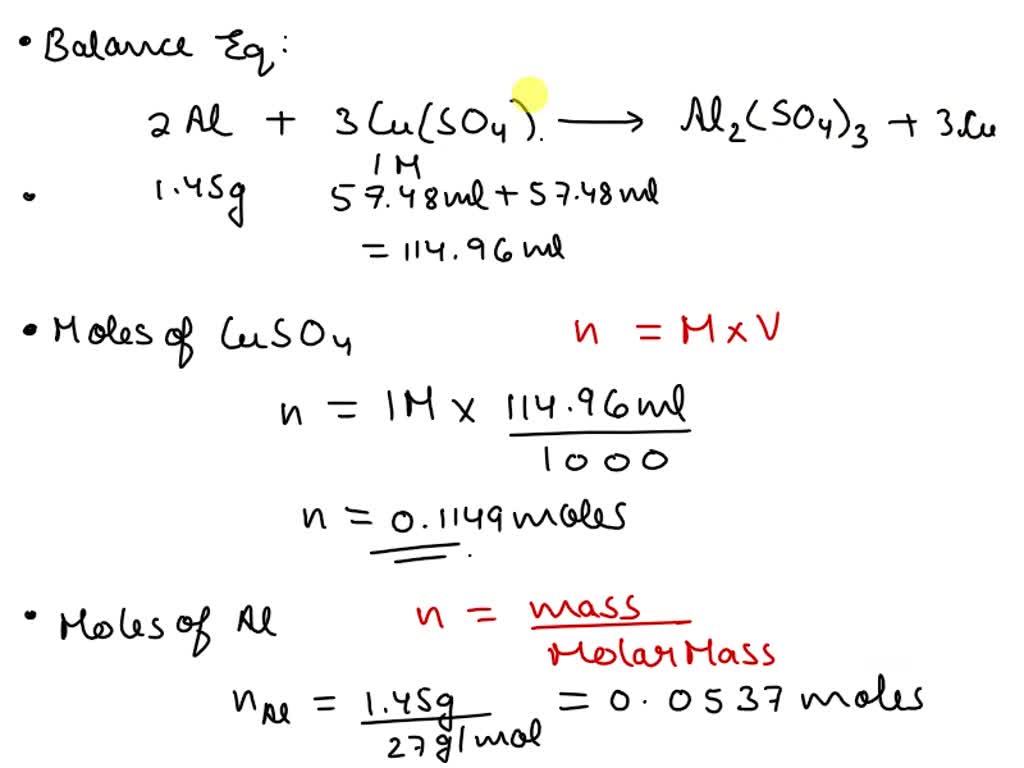 • Balance Eq:
2Al + 3Cu(SO4). ⟶ Al2(SO4)3 + 3Cu
1M
• 1.45g 57.48ml + 57.48ml
= 114.96ml
• Moles of CuSO4 n = M x V
n = 1M x 114.96ml
1000
n = 0.1149 moles.
• Moles of Al n = mass
Molar Mass
nAl = 1.45g = 0.0537 moles
27g/mol